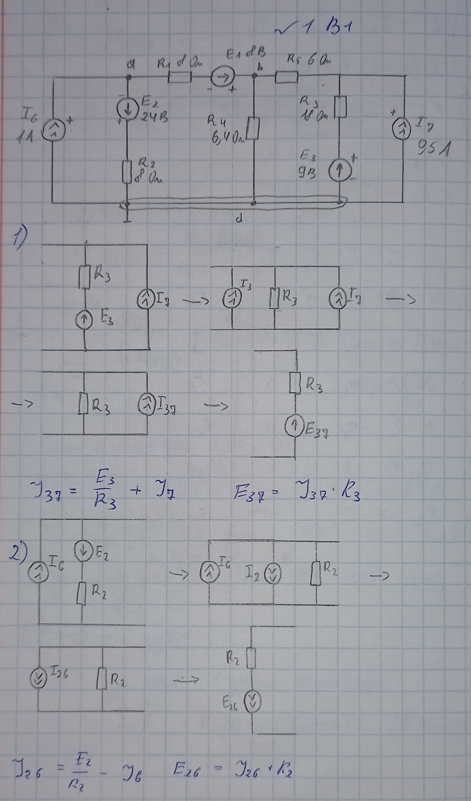 ✓ 1 В1
a R1 8 Ом E1 8В b R5 6 Ом
I6 1A
E2 24В
R2 8 Ом
R4 6,4 Ом
R3
E3 9В
I7
d
1)
R3 E3 I7 → I3 R3 I7 →
→ R3 I37 → R3 E37
J37 = E3/R3 + J7 E37 = J37 · R3
2) I6 E2 R2 → I6 I2 R2 →
I26 R2 → R2 E26
J26 = E2/R2 - J6 E26 = J26 · R2